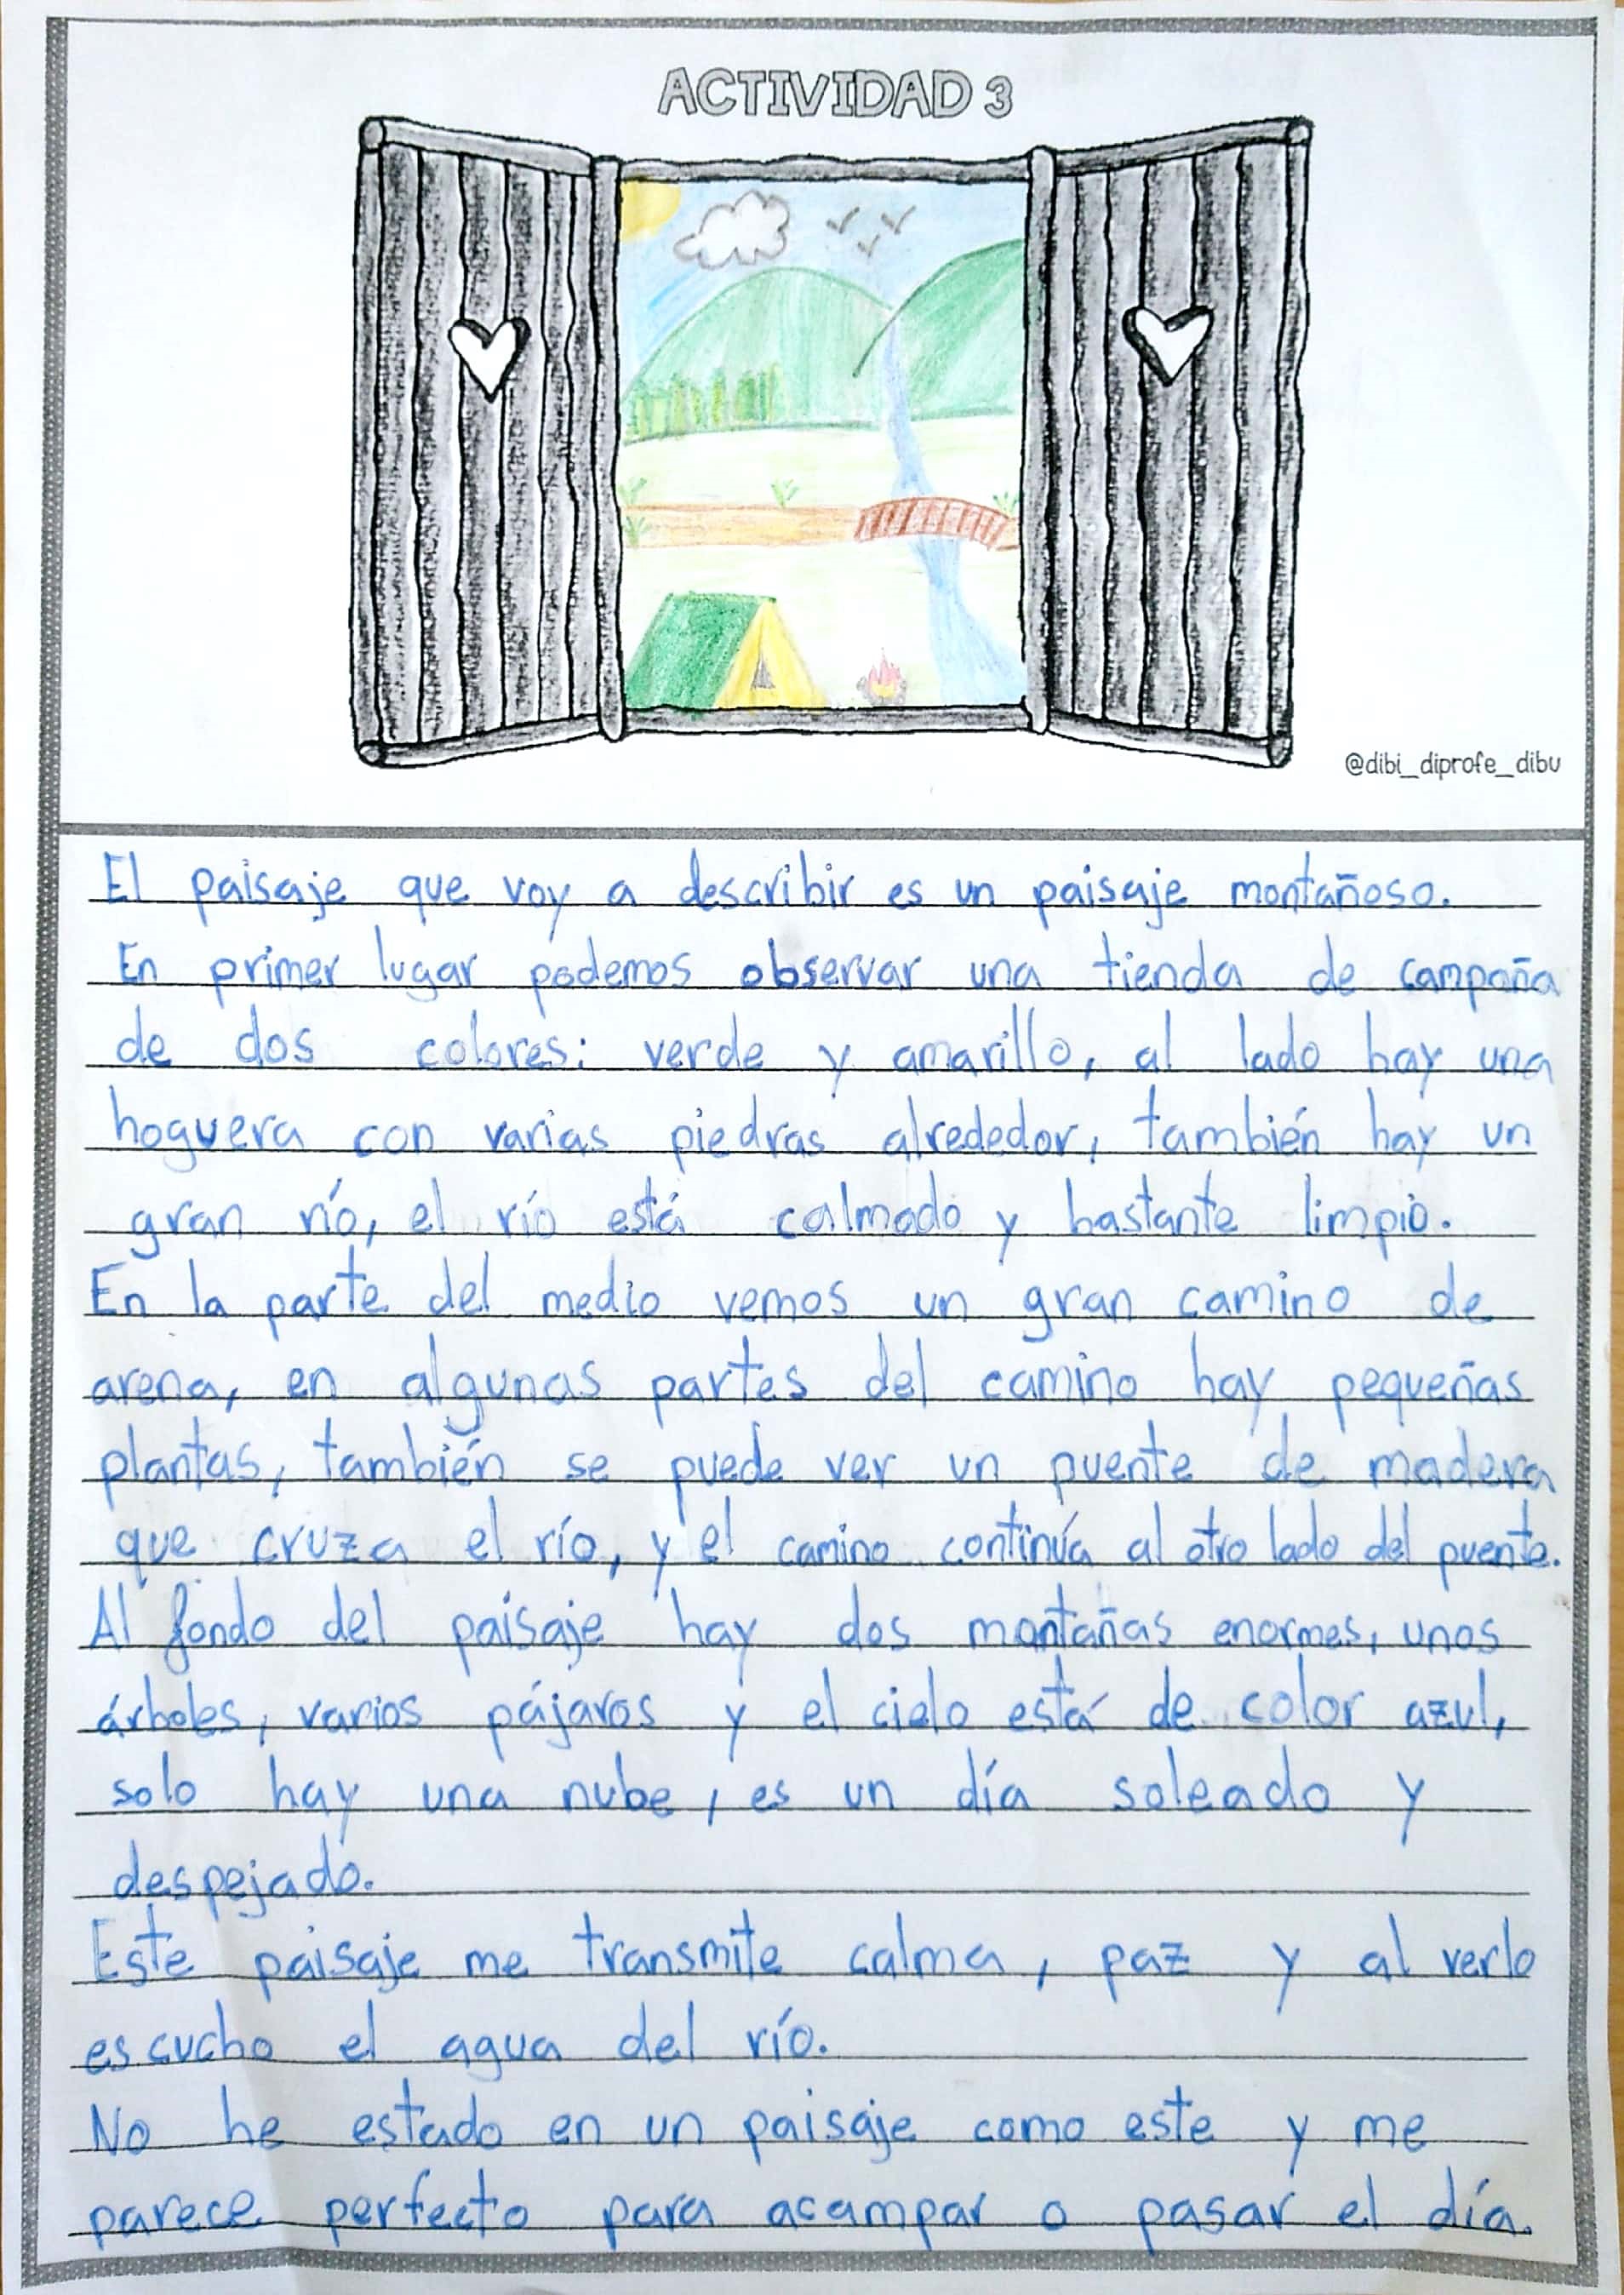 ACTIVIDAD 3
@dibi_diprofe_dibu
El paisaje que voy a describir es un paisaje montañoso.
En primer lugar podemos observar una tienda de campaña
de dos colores: verde y amarillo, al lado hay una
hoguera con varias piedras alrededor, también hay un
gran río, el río está calmado y bastante limpio.
En la parte del medio vemos un gran camino de
arena, en algunas partes del camino hay pequeñas
plantas, también se puede ver un puente de madera
que cruza el río, y el camino continúa al otro lado del puente.
Al fondo del paisaje hay dos montañas enormes, unos
árboles, varios pájaros y el cielo está de color azul,
solo hay una nube, es un día soleado y
despejado.
Este paisaje me transmite calma, paz y al verlo
escucho el agua del río.
No he estado en un paisaje como este y me
parece perfecto para acampar o pasar el día.